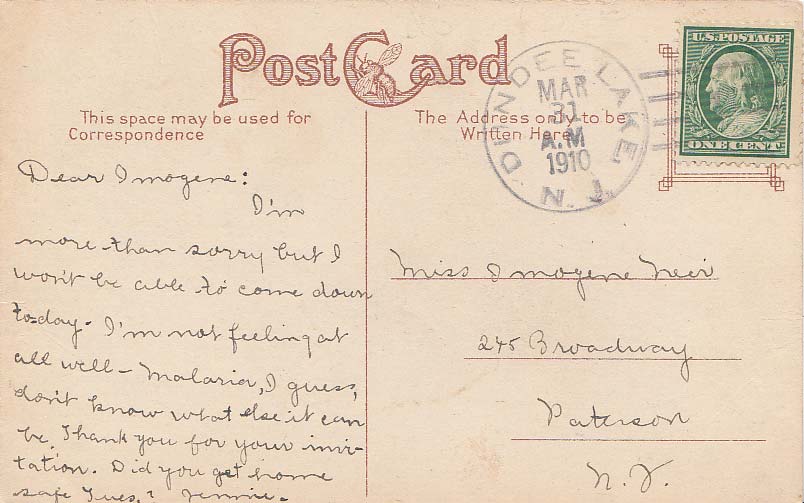 Post Card
This space may be used for
Correspondence
The Address only to be
Written Here
DUNDEE LAKE,
MAR
31
A.M
1910
N.J.
U.S. POSTAGE
ONE CENT
Dear Imogene:
I'm
more than sorry but I
won't be able to come down
to-day. I'm not feeling at
all well - Malaria, I guess,
don't know what else it can
be. Thank you for your invi-
tation. Did you get home
safe Tues.? Jennie.
Miss Imogene Neir
245 Broadway
Paterson
N. J.